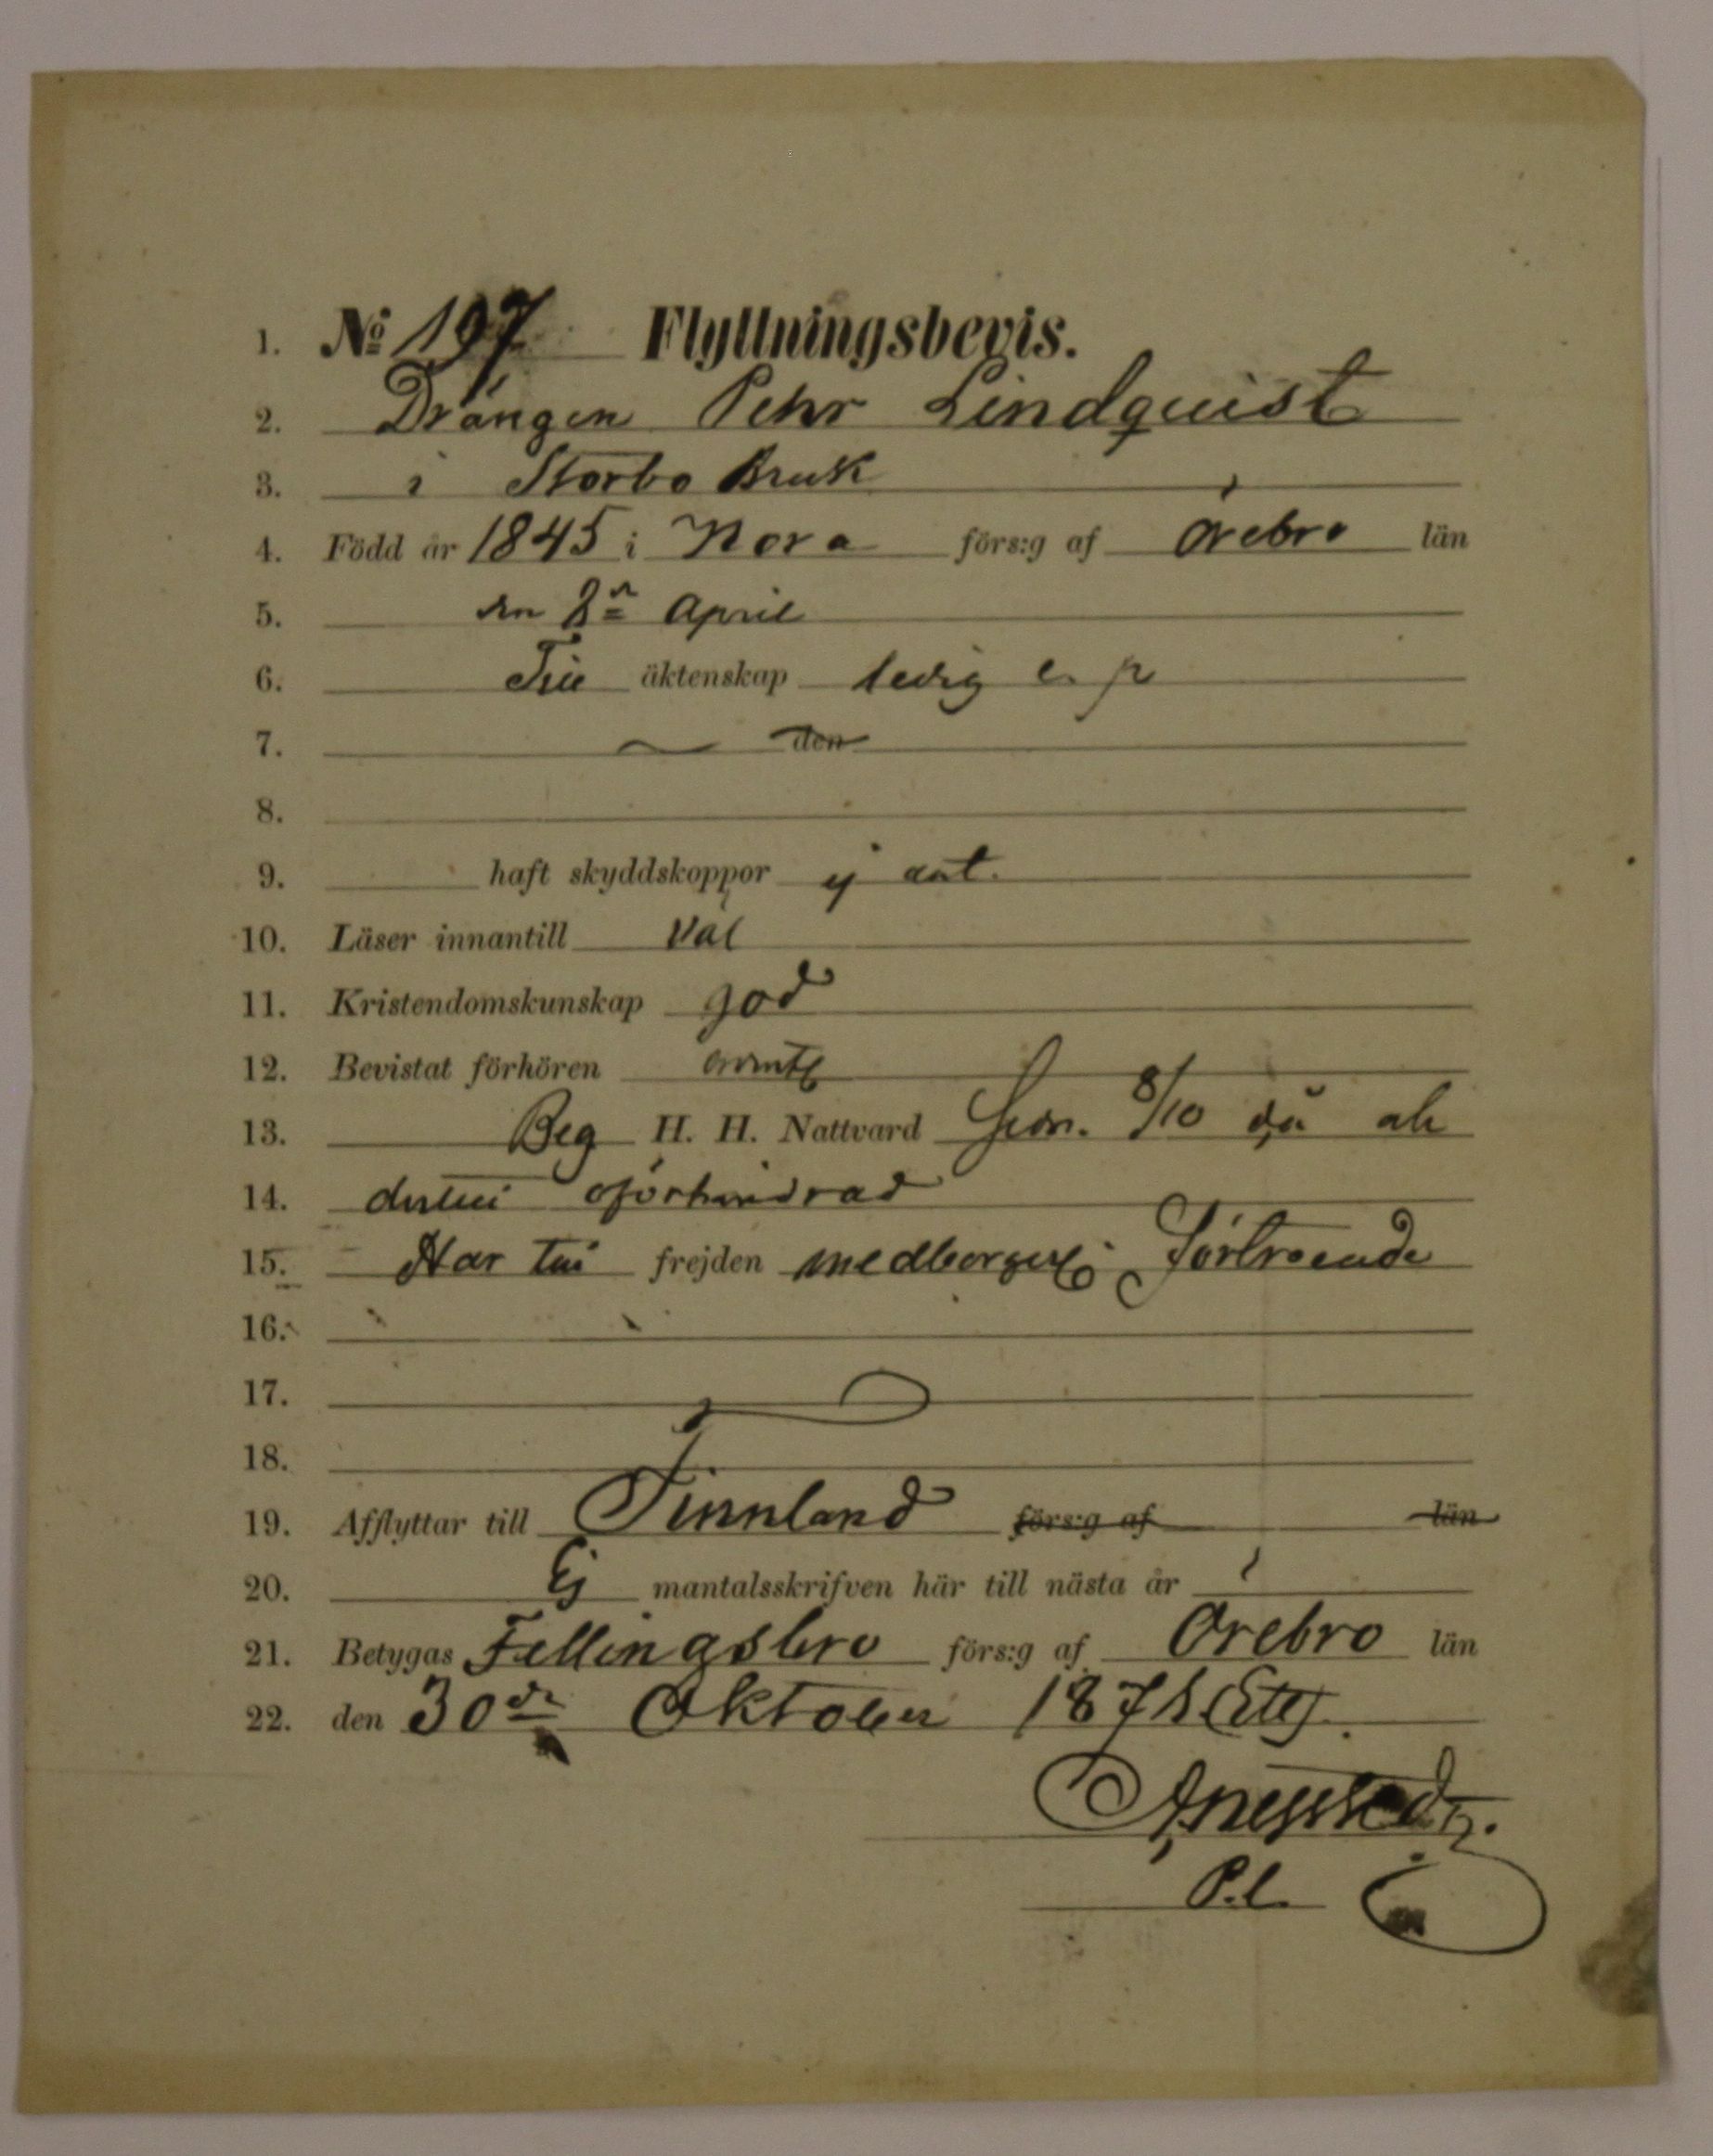 1. No 197 Flyttningsbevis.
2. Drängen Pehr Lindquist
3. i Storbo Bruk
4. Född år 1845 i Nora förs:g af Örebro län
5. den 8de April
6. Till äktenskap ledig e. p
7. den
8.
9. haft skyddskoppor ej ant.
10. Läser innantill väl
11. Kristendomskunskap god
12. Bevistat förhören
13. Beg H. H. Nattvard 8/10 då ah
14. oförhindrad
15. Har till frejden medborgerl. förtroende
16.
17.
18.
19. Afflyttar till Finnland förs:g af län
20. Ej mantalsskrifven här till nästa år
21. Betygas Fellingsbro förs:g af Örebro län
22. den 30de Oktober
P.l.